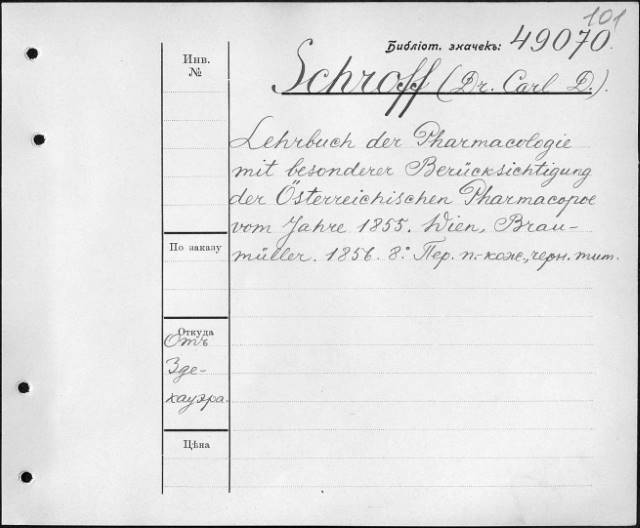 101
Библіот. значекъ: 49070.
Инв.
№
Schroff (Dr. Carl D.).
Lehrbuch der Pharmacologie
mit besonderer Berücksichtigung
der Österreichischen Pharmacopoe
vom Jahre 1855. Wien, Brau-
müller. 1856. 8.° Пер. п.-кож., черн. тит.
По заказу
Откуда
Отъ
Зде-
кауэра.
Цѣна